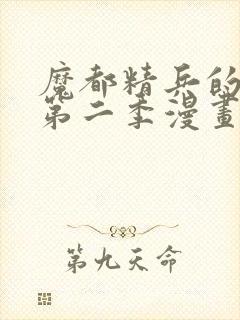 魔都精兵的
第二季漫畫
第九天命